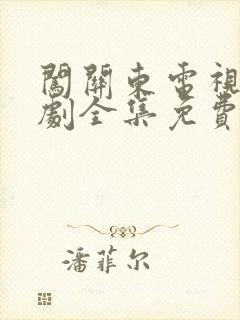 闖關東電視
劇全集免費
潘菲尔